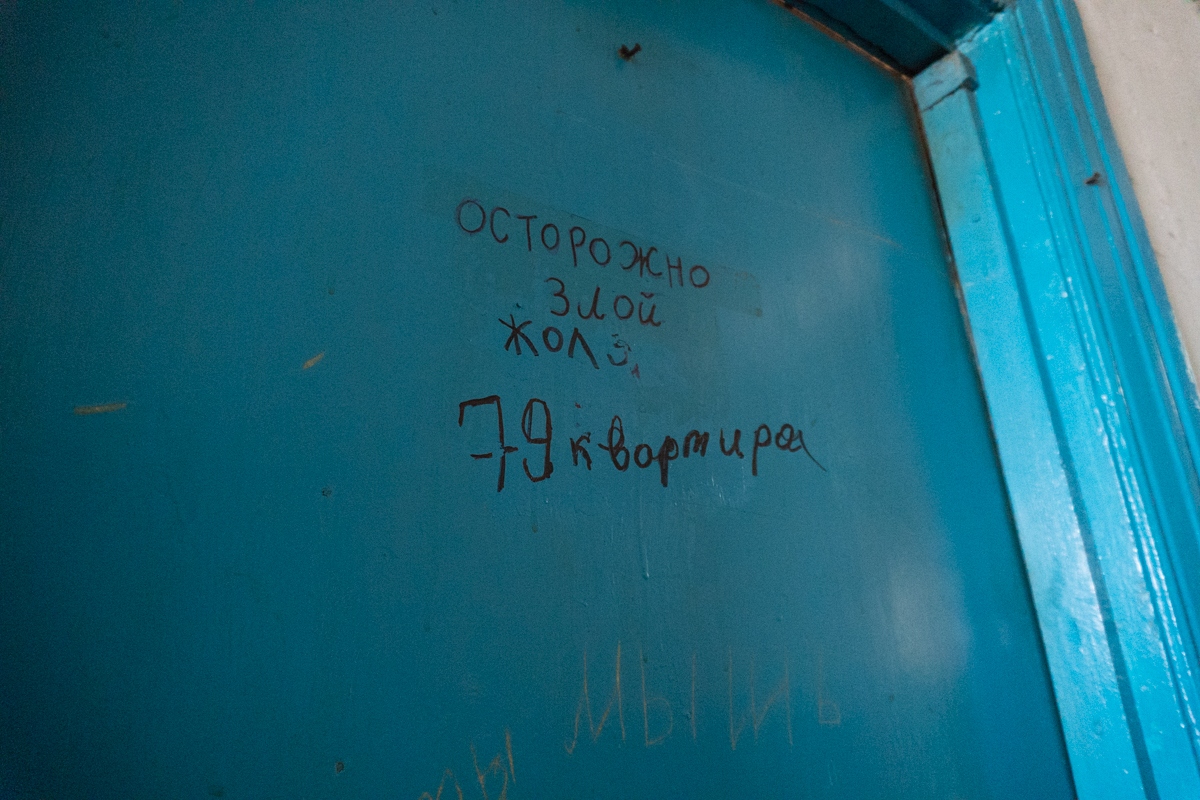 ОСТОРОЖНО
ЗЛОЙ
79 квартира
МЫШЬ